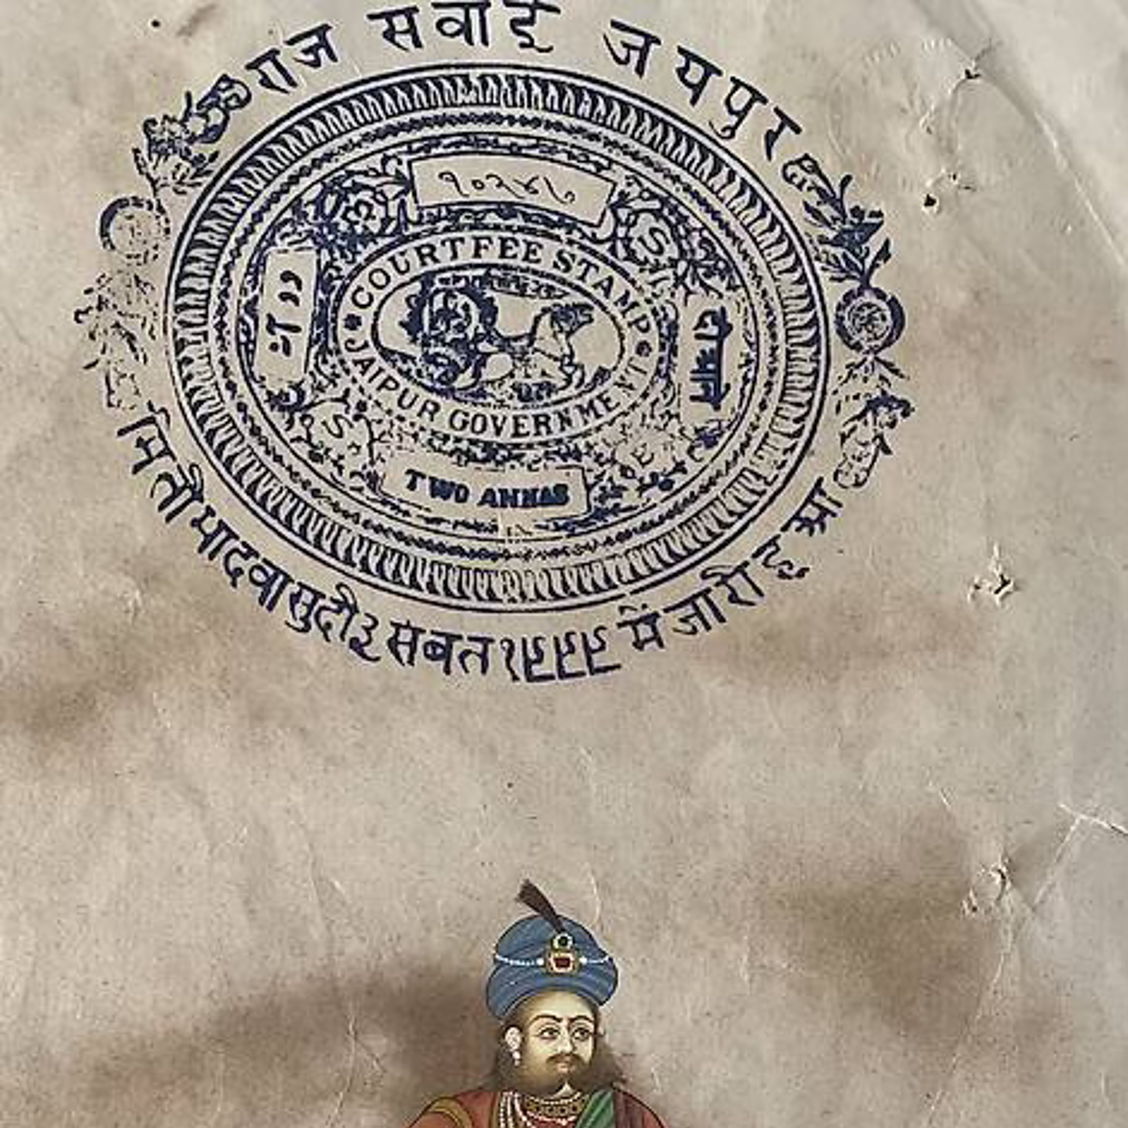 राज सवाई जयपुर
१०२४७
COURT FEE STAMP
JAIPUR GOVERNMENT
दो आने
TWO ANNAS
मिती भादवा सुदी ३ संबत १९९९ में जारी हुआ